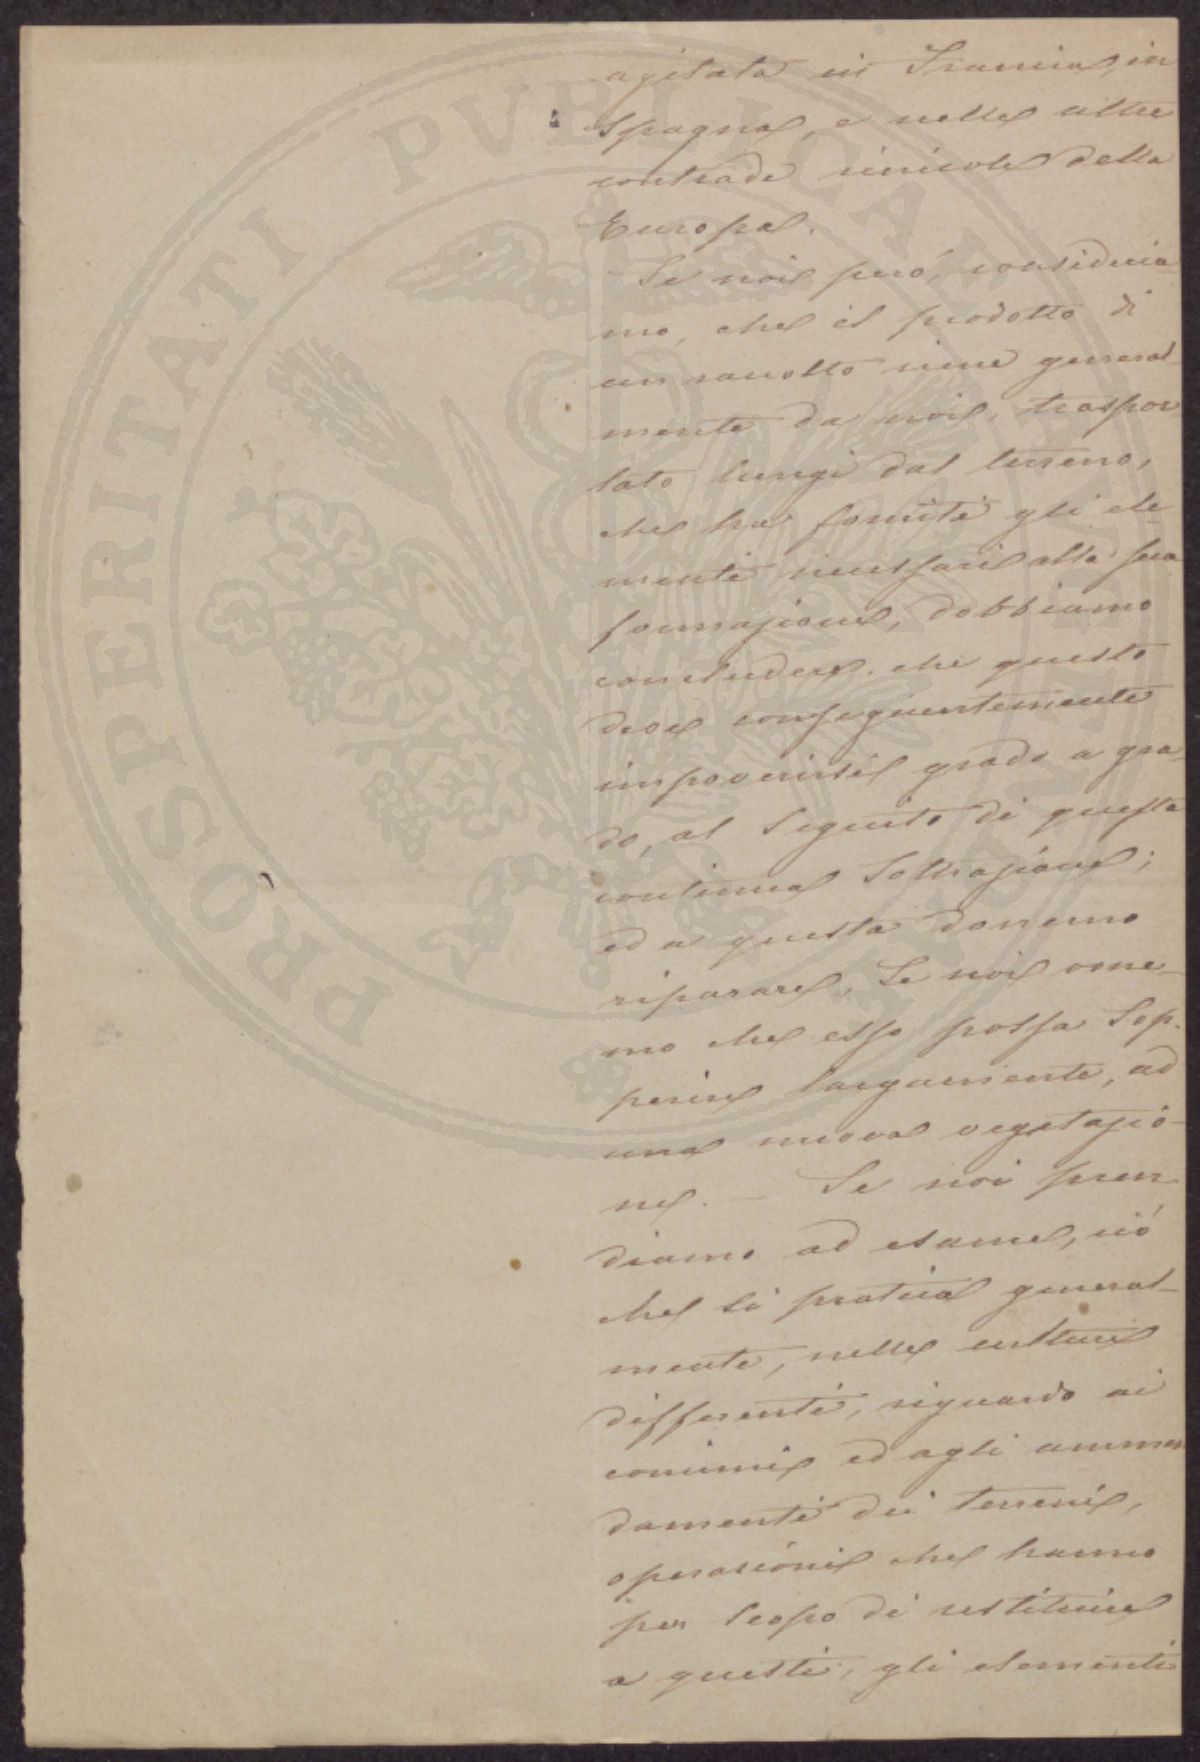 agitata in Francia, in
Spagna, e nelle altre
contrade vinicole della
Europa.
Se noi però, consideria
mo, che il prodotto di
un racolto viene general-
mente da noi, traspor
tato lungi dal terreno,
che ha forniti gli ele
menti necessari alla sua
formazione, dobbiamo
concludere che questo
deve conseguentemente
impoverirsi grado a gra
do, al seguito di questa
continua sottrazione;
ed a questa dovremo
riparare, se noi vorre-
mo che esso possa sop-
perire largamente, ad
una nuova vegetazio-
ne. — Se noi pren
diamo ad esame, ciò
che si pratica general-
mente, nelle culture
differenti, riguardo ai
concimi ed agli ammen
damenti dei terreni,
operazioni che hanno
per scopo di restituire
a questi, gli elementi
PROSPERITATI PVBLICAE